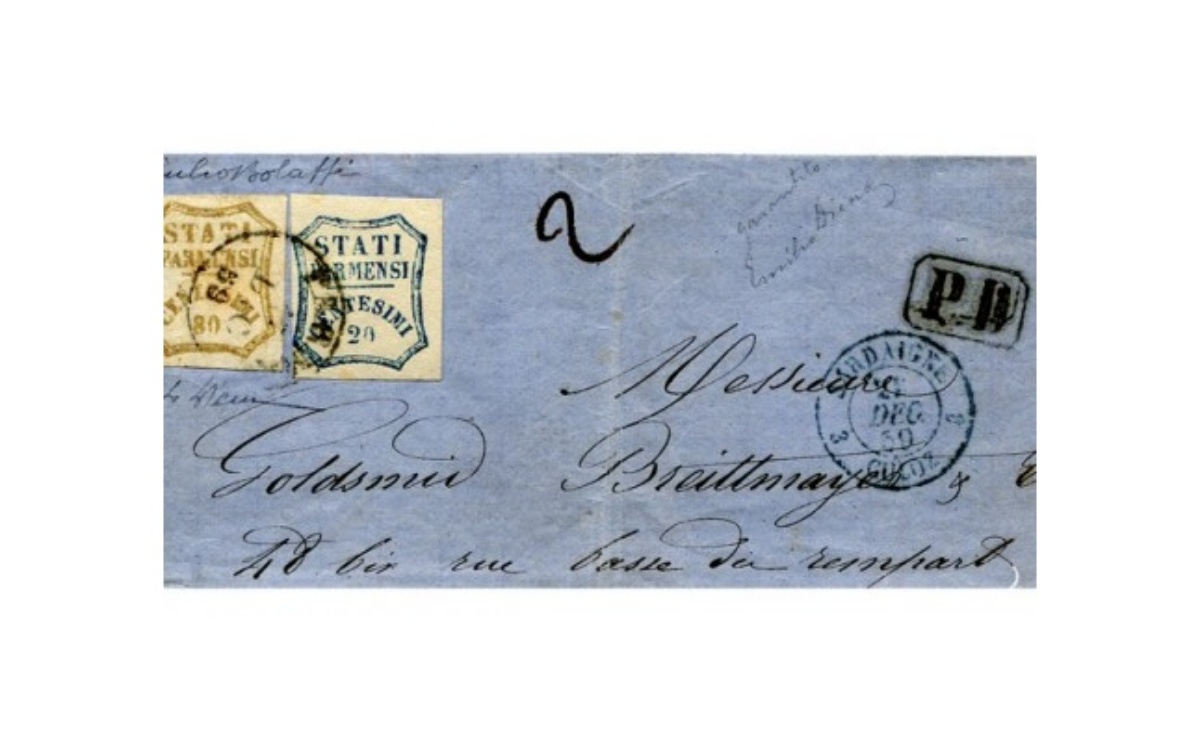 STATI
PARMENSI
CENTESIMI
80
59
STATI
PARMENSI
CENTESIMI
20
2
Emilio Diena
P.D
SARDAIGNE
27
DEC.
59
CULOZ
3 3
Messieurs
Goldsmid Breittmayer &
48 bis rue basse du rempart